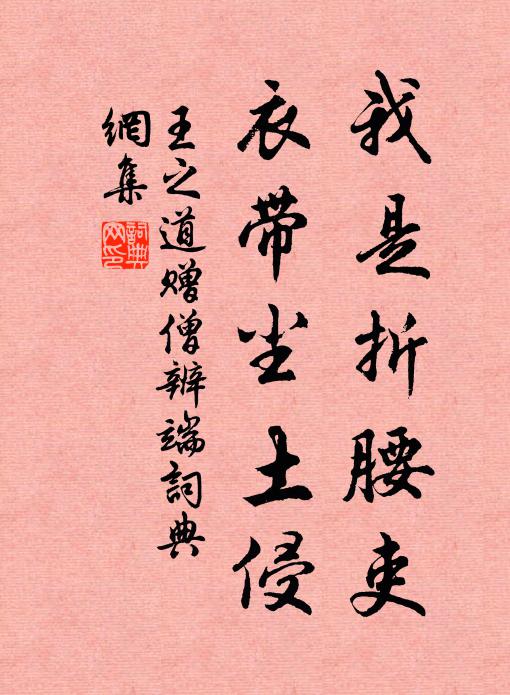 我是折腰吏
衣带尘土侵
王之道赠僧辨端詞典
網集
詞典
网印